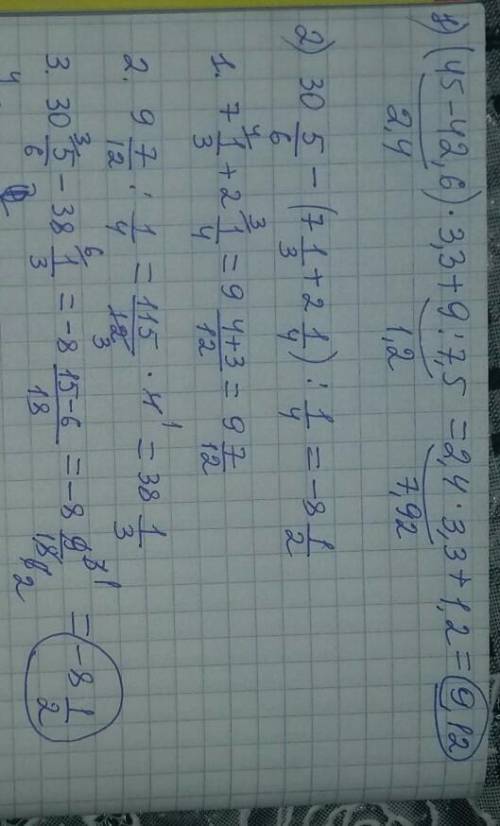 1) (45-42,6)·3,3+9:7,5 = 2,4·3,3+1,2 = 9,12
2,4 1,2 7,92
2) 30 5/6 - (7 1/3 + 2 1/4) : 1/4 = -8 1/2
1. 7 1/3 + 2 1/4 = 9 (4+3)/12 = 9 7/12
2. 9 7/12 : 1/4 = 115/12 · 4 = 38 1/3
3. 30 5/6 - 38 1/3 = -8 (15-6)/18 = -8 9/18 = -8 1/2